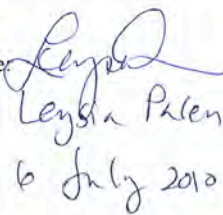 Leysia Palen
6 July 2010